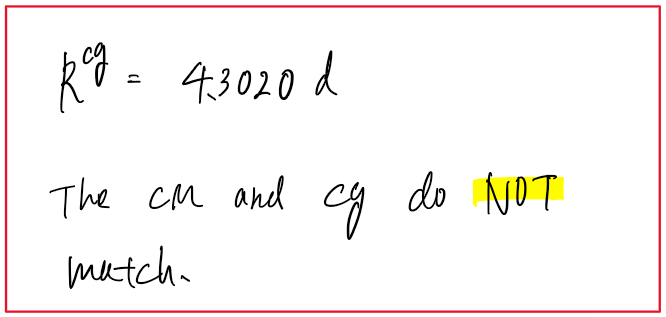 R^cg = 4.3020 d
The CM and cg do NOT
match.